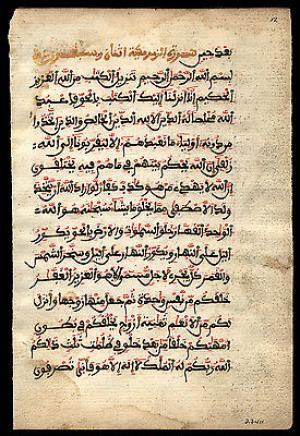 12
بعد حين سورة الزمر مكية اثنان وسبعون
بسم الله الرحمن الرحيم تنزيل الكتب من الله العزيز
الحكيم انا انزلنا اليك الكتب بالحق فاعبد
الله مخلصا له الدين الا لله الدين الخالص والذين اتخذوا
من دونه اولياء ما نعبدهم الا ليقربونا الى الله
زلفى ان الله يحكم بينهم في ما هم فيه يختلفون
ان الله لا يهدي من هو كذب كفار لو اراد الله ان يتخذ
ولدا لاصطفى مما يخلق ما يشاء سبحنه هو الله
الوحد القهار خلق السموت والارض بالحق يكور
اليل على النهار ويكور النهار على اليل وسخر الشمس
والقمر كل يجري لاجل مسمى الا هو العزيز الغفر
خلقكم من نفس وحدة ثم جعل منها زوجها وانزل
لكم من الانعم ثمنية ازوج يخلقكم في بطون
امهتكم خلقا من بعد خلق في ظلمت ثلث ذلكم
الله ربكم له الملك لا اله الا هو فانى تصرفون